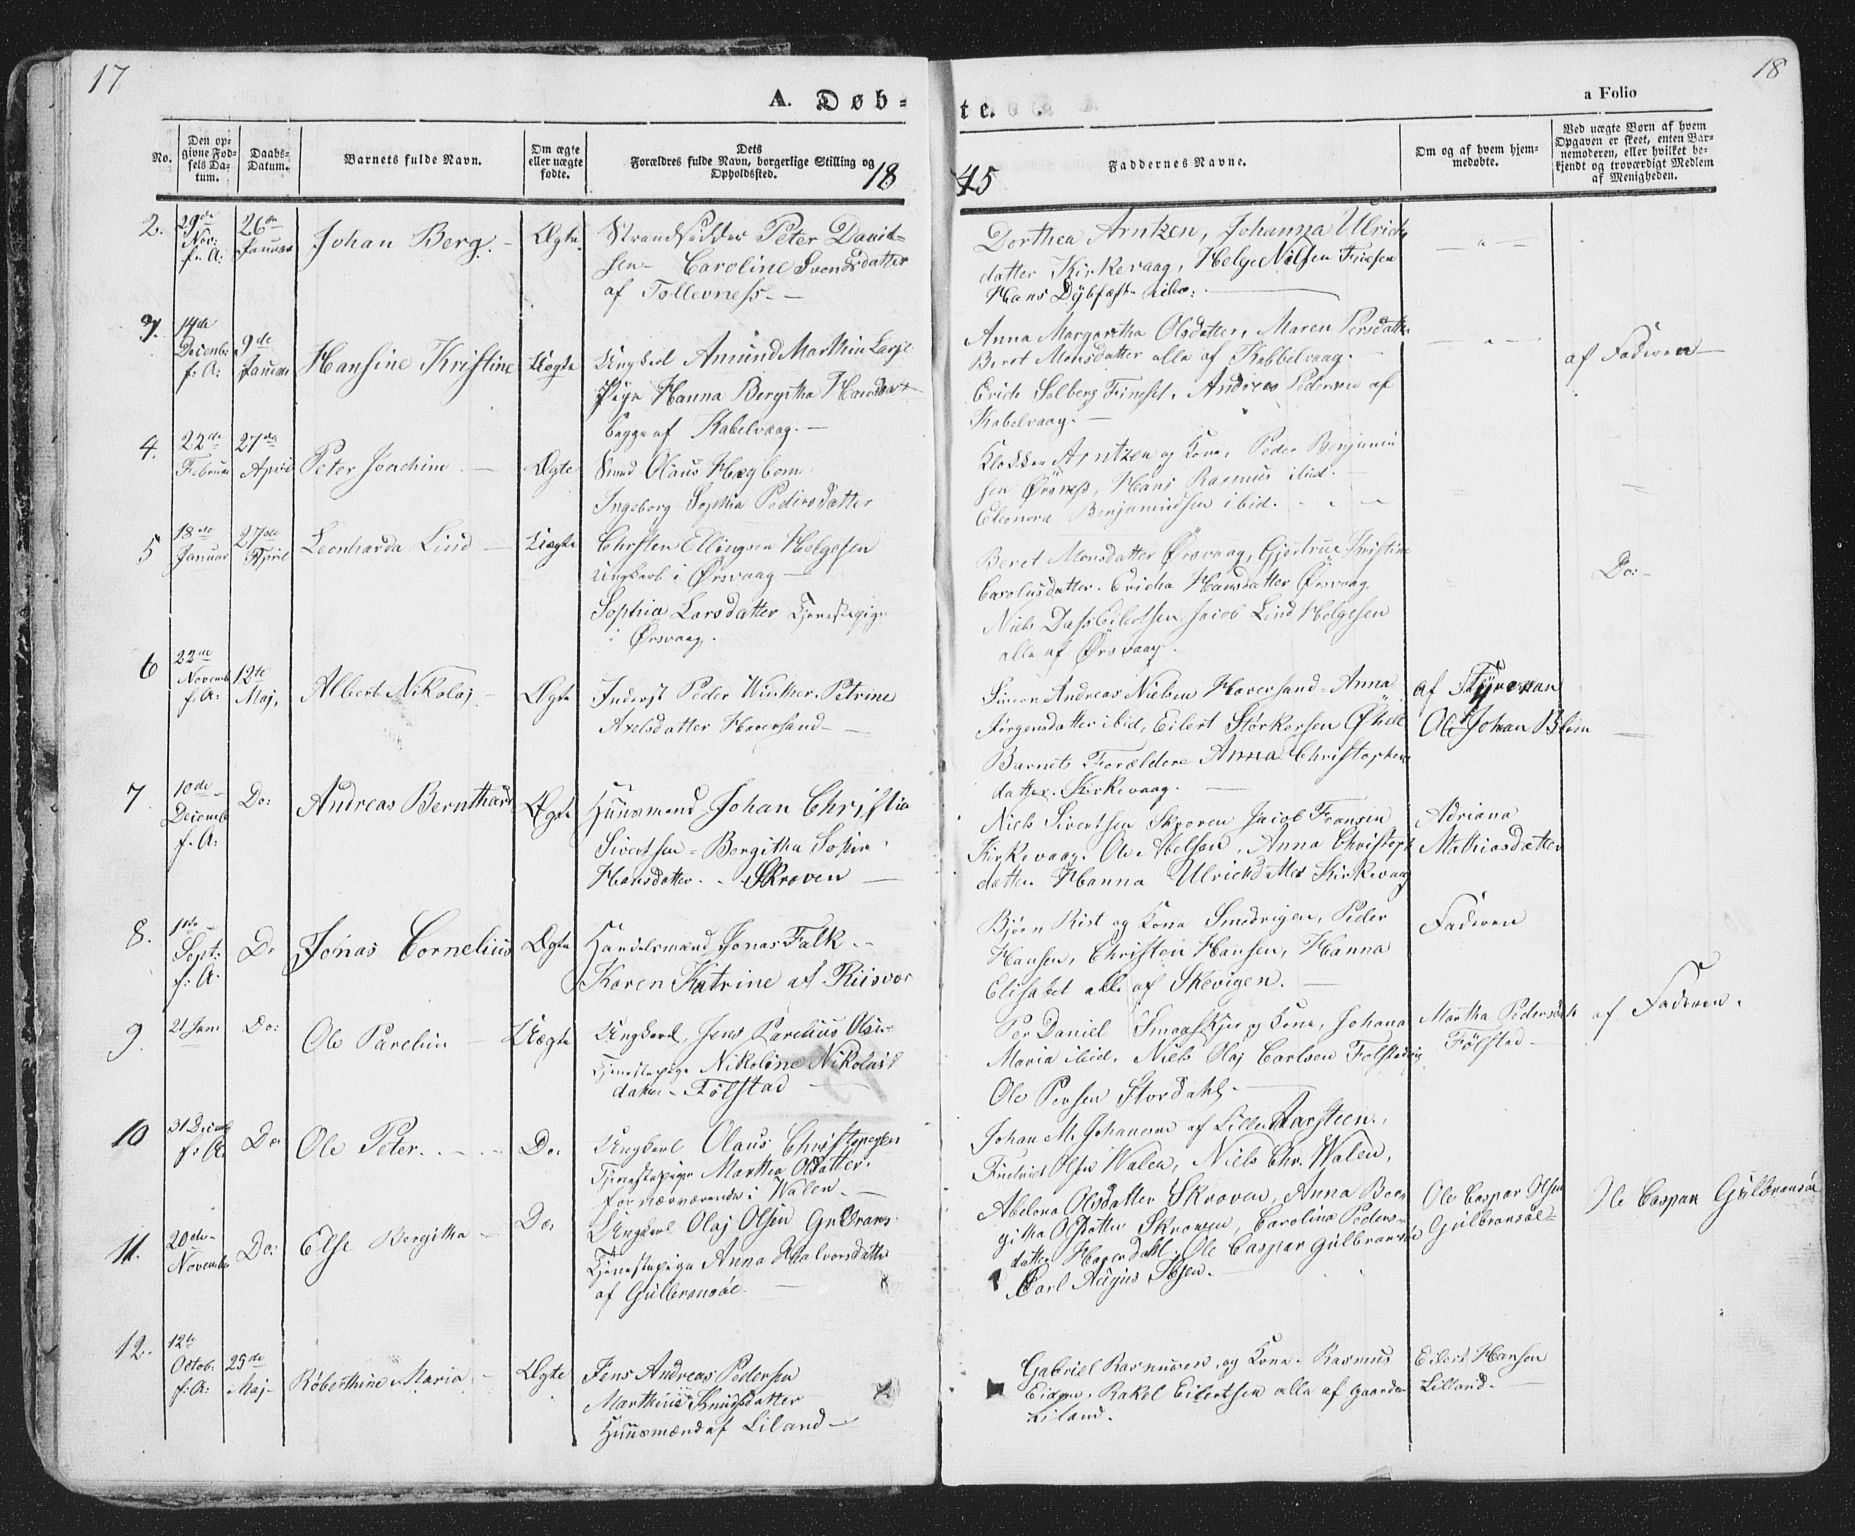 17
18
A. Døb-
te.
a Folio
No.
Den op-
givne Fød-
sels Da-
tum.
Daabs-
Datum.
Barnets fulde Navn.
Om ægte
eller uægte
fødte.
Dets
Forældres fulde Navn, borgerlige Stilling og
Opholdssted.
18
45
Faddernes Navne.
Om og af hvem hjem-
medøbte.
Ved uægte Børn af hvem
Opgaven er skeet, enten Bar-
nemoderen, eller hvilket be-
kjendt og troværdigt Medlem
af Menigheden.
2.
29de
Nov:
f. A:
26de
Januar
Johan Berg. -
Ægte
Strandsidder Peter David-
sen - Caroline Svendsdatter
af Tollevness. -
Dorthea Arntzen, Johanna Ulrichs
datter Kirkevaag, Helge Nilsen
Hans
3.
14de
Decembr
f. A:
9de
Januar
Hansine Kristine
Uægte
Ungkarl Amund Marthin
Pige Hanna Bergitha
begge af Kabelvaag. -
Anna Margaretha Olsdatter, Maren Persdatter
Beret Monsdatter alle af Kabbelvaag. -
Erich Solberg Andreas Pedersen af
Kabelvaag. -
af Faderen -
4.
22de
Februar
27de
April
Peter Joachim -
Ægte
Olaus Hegbom
Ingeborg Sophia Pedersdatter
Klokker Arntzen og Kone, Peder Benjamin
sen Ørsnes, Hans Rasmus ibid. -
Eleonora Benjaminsen ibid.
5
18de
Januar
27de
April
Leonharda Lind -
Uægte
Christen Ellingsen Helgesen
Ungkarl i Ørsvaag -
Sophia Larsdatter Tjenestepige
i Ørsvaag.
Beret Monsdatter Ørsvaag, Gjertrue Kristine
Carolusdatter. Hansdatter Ørsvaag
Niels Dass Eilertsen, Jacob Lind Helgesen
alle af Ørsvaag.
Do: -
6
22de
Novemb
f. A:
12te
Maj,
Albert Nikolaj -
Ægte
Inderst Peder Winther. Petrine
Axelsdatter Hoversand -
Simon Andreas Nielsen Hoversand - Anna
Jørgensdatter ibid, Eilert Størkersen
Barnets Forældre Anna Christophers
datter. Kirkevaag. -
af Styrman
Ole Johan Blom
7
10de
Decemb
f. A:
Do:
Andreas Bernthard
Ægte
Huusmand Johan Christia
Sivertsen - Bergitha Sofie
Hansdatter. - Skroven -
Niels Sivertsen Skroven Jacob Fransen
Kirkevaag. Ole Abelsen, Anna Christoph
datter. Hanna Ulrichdatter Kirkevaag
Adriana
Mathiasdatter
8.
1ste
Sept:
f. A.
Do
Jonas Cornelius
Ægte
Handelsmand Jonas Falk -
Karen Katrine af Riisvær
Bjørn Rist og Kone Smedvigen, Peder
Hansen, Christen Hansen, Hanna
Elisabet alle af Skevigen. -
Faderen
9.
21 Jan:
Do:
Ole Parelius -
Uægte
Ungkarl Jens Parelius Olsen
Tjenestepige Nikoline Nikolais
datter - Følstad -
Per Daniel og Kone, Johana
Maria ibid, Niels Olaj Carlsen Følstad
Ole Persen Stordahl. -
Martha Pedersdatter
Følstad -
af Faderen.
10
31 Decemb
f. A
Do
Ole Peter. - - -
Do.
Ungkarl Olaus
Tjenestepige Martha Olsdatter.
fornærværende i Walen. -
Johan M. Johansen af Lille Aarsteen.,
Fredrich Olsen Walen, Niels Chr. Walen,
11.
20de
Novemb
Do:
Else Bergitha -
Do.
Ungkarl Olaj Olsen
Tjenestepige Anna Halvorsdatter
af Gulbransøe. -
Abelona Olsdatter Skroven, Anna Ber
githa Olsdatter Skroven, Carolina Peders-
datter Ole Caspar
Carl Ibsen. -
Ole Caspar Olsen
Gulbransøe -
Ole Caspar Gulbransøe
12.
12te
Octob:
f. A:
25de
Maj -
Roberthine Maria -
Ægte
Jens Andreas Pedersen
Marthine Knudsdatter
Huusmand af Liland -
Gabriel Rasmussen, og Kone. Rasmus
Rakel Eilertsen alle af Gaarden
Liland.
Eilert Hansen
Lilland. -